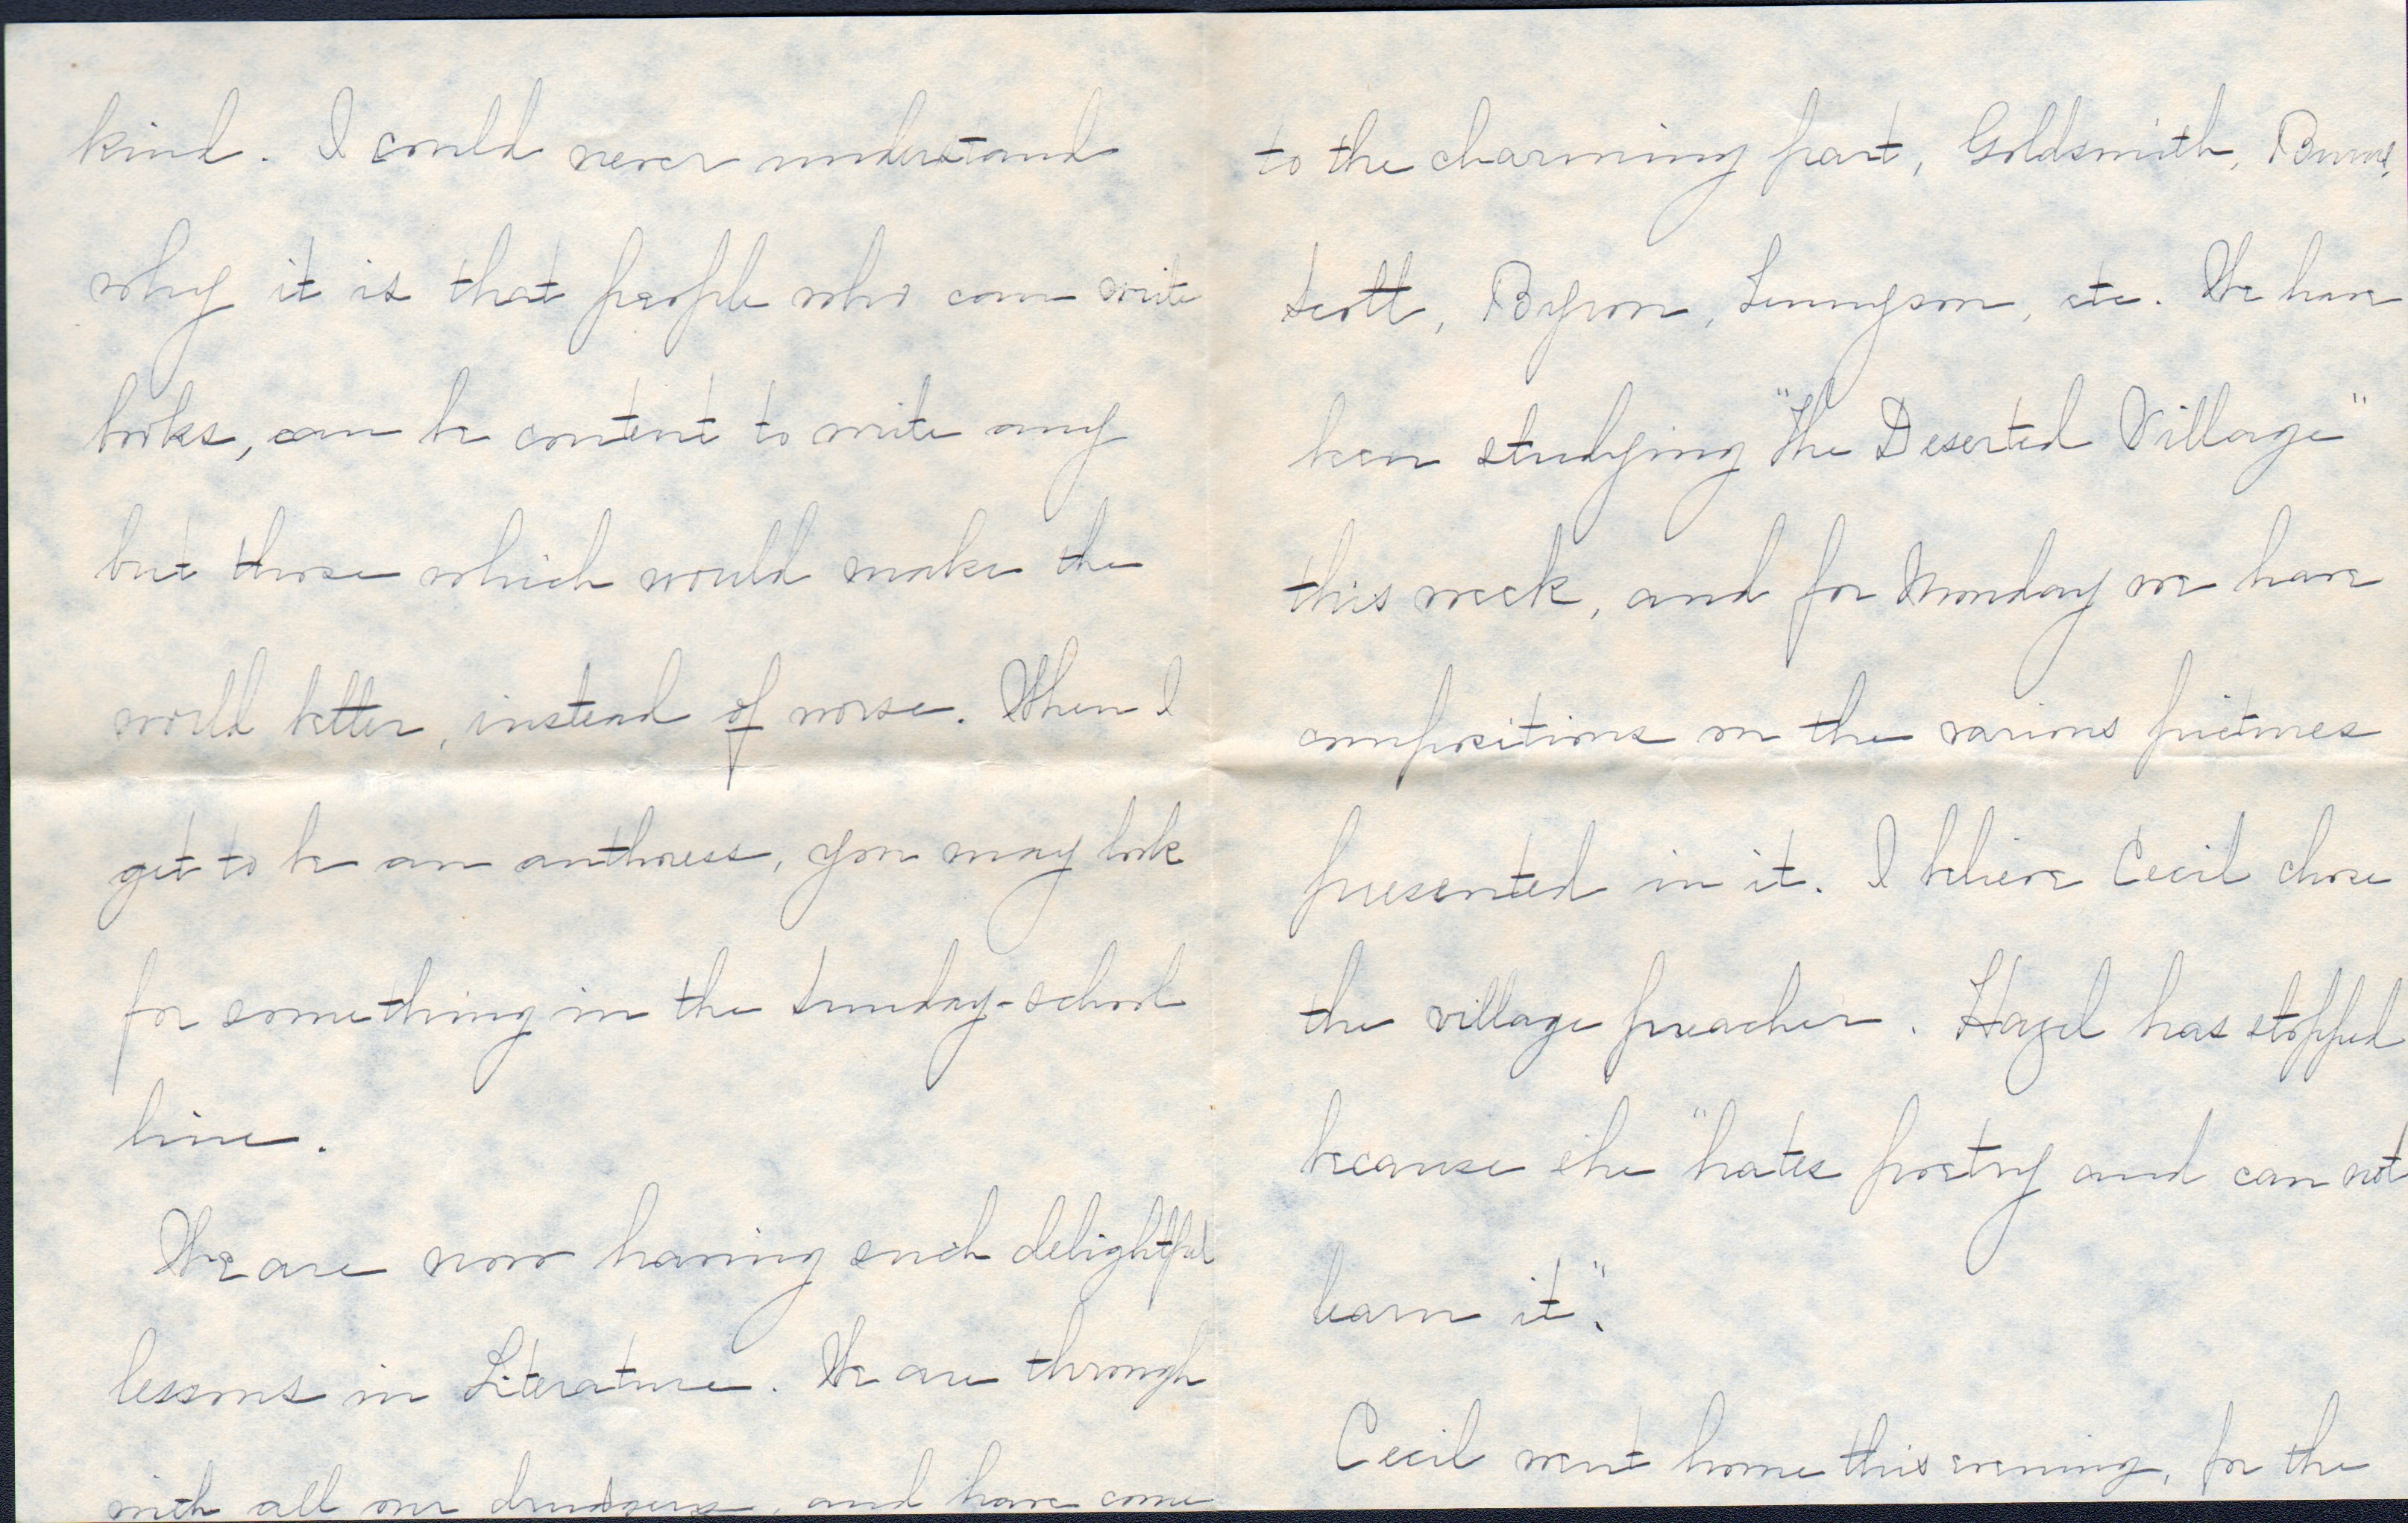 kind. I could never understand
why it is that people who can write
books, can be content to write any
but those which would make the
world better, instead of worse. When I
get to be an authoress, you may look
for something in the Sunday-school
line.
We are now having such delightful
lessons in Literature. We are through
with all our drudgery, and have come
to the charming part, Goldsmith, Burns,
Scott, Byron, Tennyson, etc. We have
been studying "The Deserted Village"
this week, and for Monday we have
compositions on the various pictures
presented in it. I believe Cecil chose
the village preacher. Hazel has stopped
because she "hates poetry and can not
learn it".
Cecil went home this evening, for the